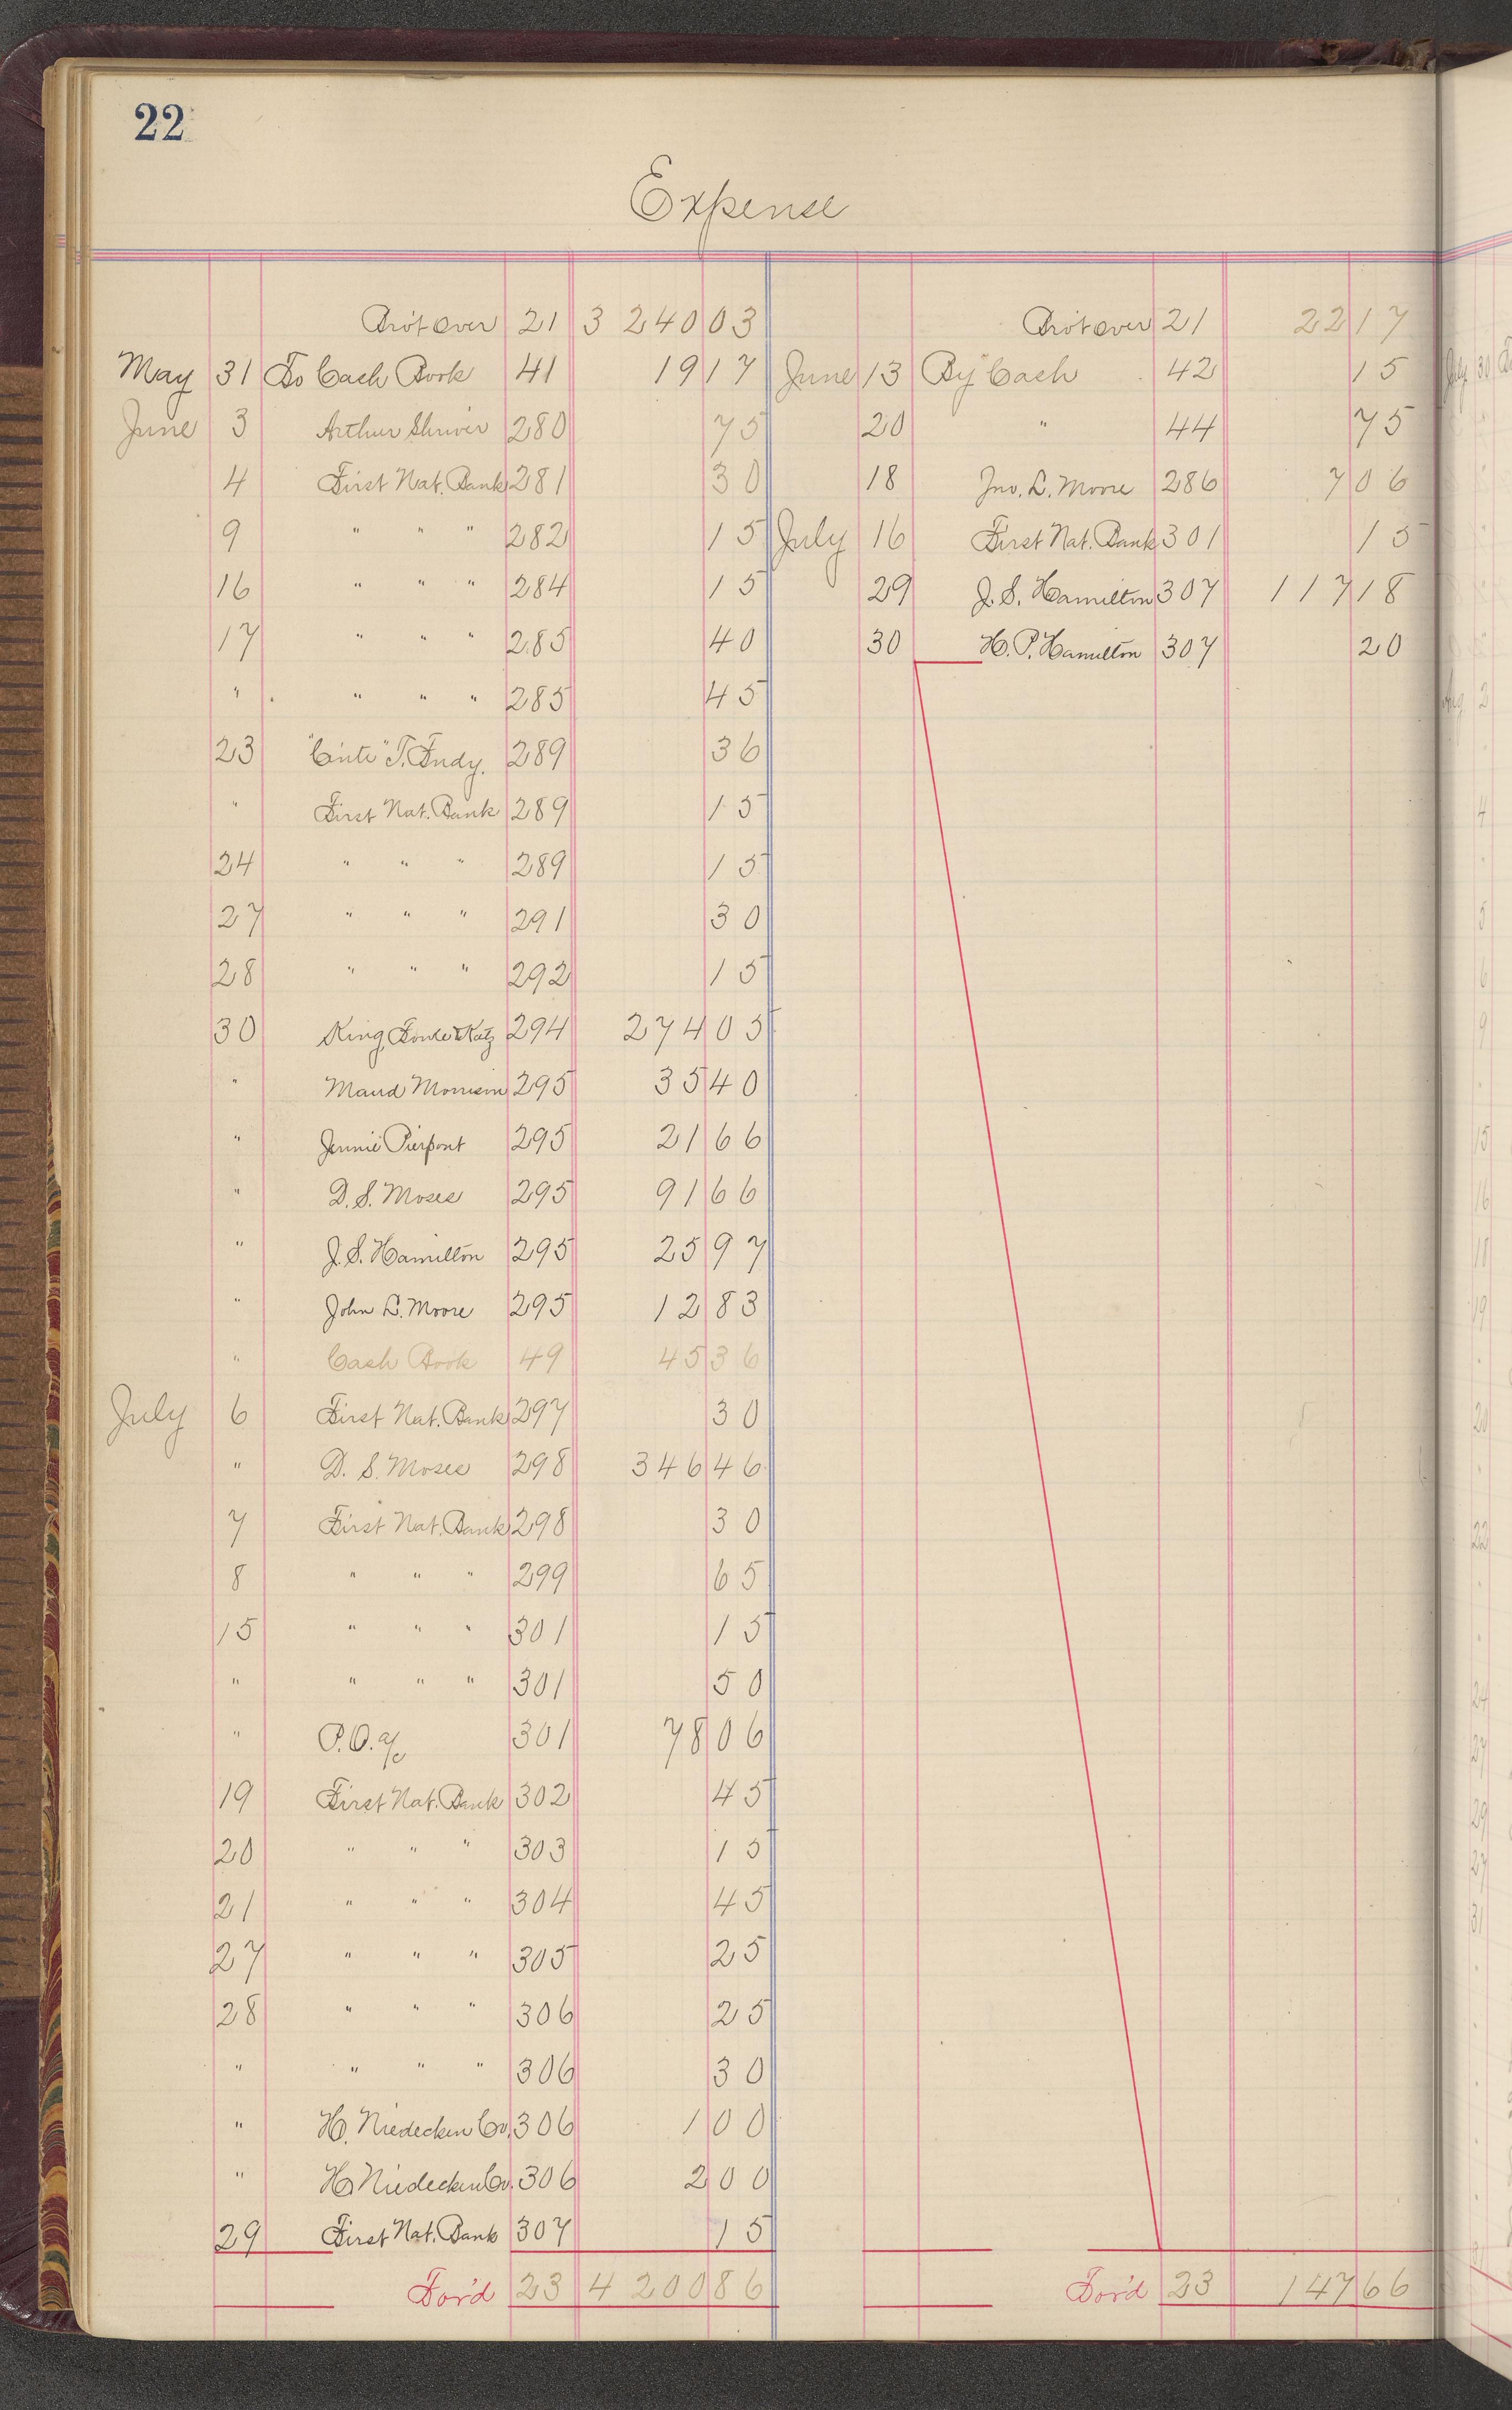 22
Expense
Bro't Over 21 3 240 03
May 31 To Cash Book 41 19 17
June 3 Arthur Shriver 280 75
4 First Nat. Bank 281 30
9 " " " 282 15
16 " " " 284 15
17 " " " 285 40
" " " " 285 45
23 "Cinti" T. Indy. 289 36
" First Nat. Bank 289 15
24 " " " 289 15
27 " " " 291 30
28 " " " 292 15
30 King & Katz 294 274 05
" Maud Morrison 295 35 40
" Jennie Pierpont 295 21 66
" D. S. Moses 295 91 66
" J. S. Hamilton 295 25 97
" John L. Moore 295 12 83
" Cash Book 49 45 36
July 6 First Nat. Bank 297 30
" D. S. Moses 298 346 46
7 First Nat. Bank 298 30
8 " " " 299 65
15 " " " 301 15
" " " " 301 50
" P.O. a/c 301 78 06
19 First Nat. Bank 302 45
20 " " " 303 15
21 " " " 304 45
27 " " " 305 25
28 " " " 306 25
" " " " 306 30
" H. Niedecken Co. 306 1 00
" H. Niedecken Co. 306 2 00
29 First Nat. Bank 307 15
For'd 23 4 200 86
Bro't over 21 22 17
June 13 By Cash 42 15
20 " 44 75
18 Jno. L. Moore 286 7 06
July 16 First Nat. Bank 301 15
29 J. S. Hamilton 307 117 18
30 H. P. Hamilton 307 20
For'd 23 147 66